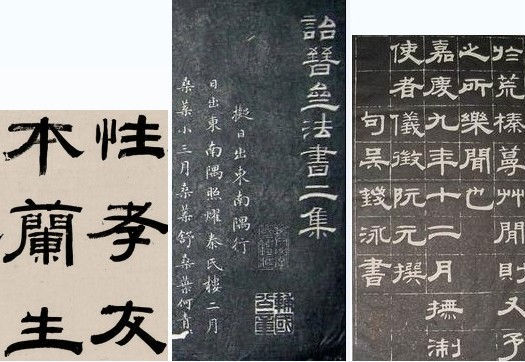 性孝友
本蘭生
詒晉齋法書二集
擬日出東南隅行
日出東南隅照耀秦氏樓二月
桑葉小三月桑葉舒桑葉何青
於荒榛蔓艸閒則又予
之所樂聞也
嘉慶九年十二月撫淛
使者儀徵阮元撰
句吳錢泳書